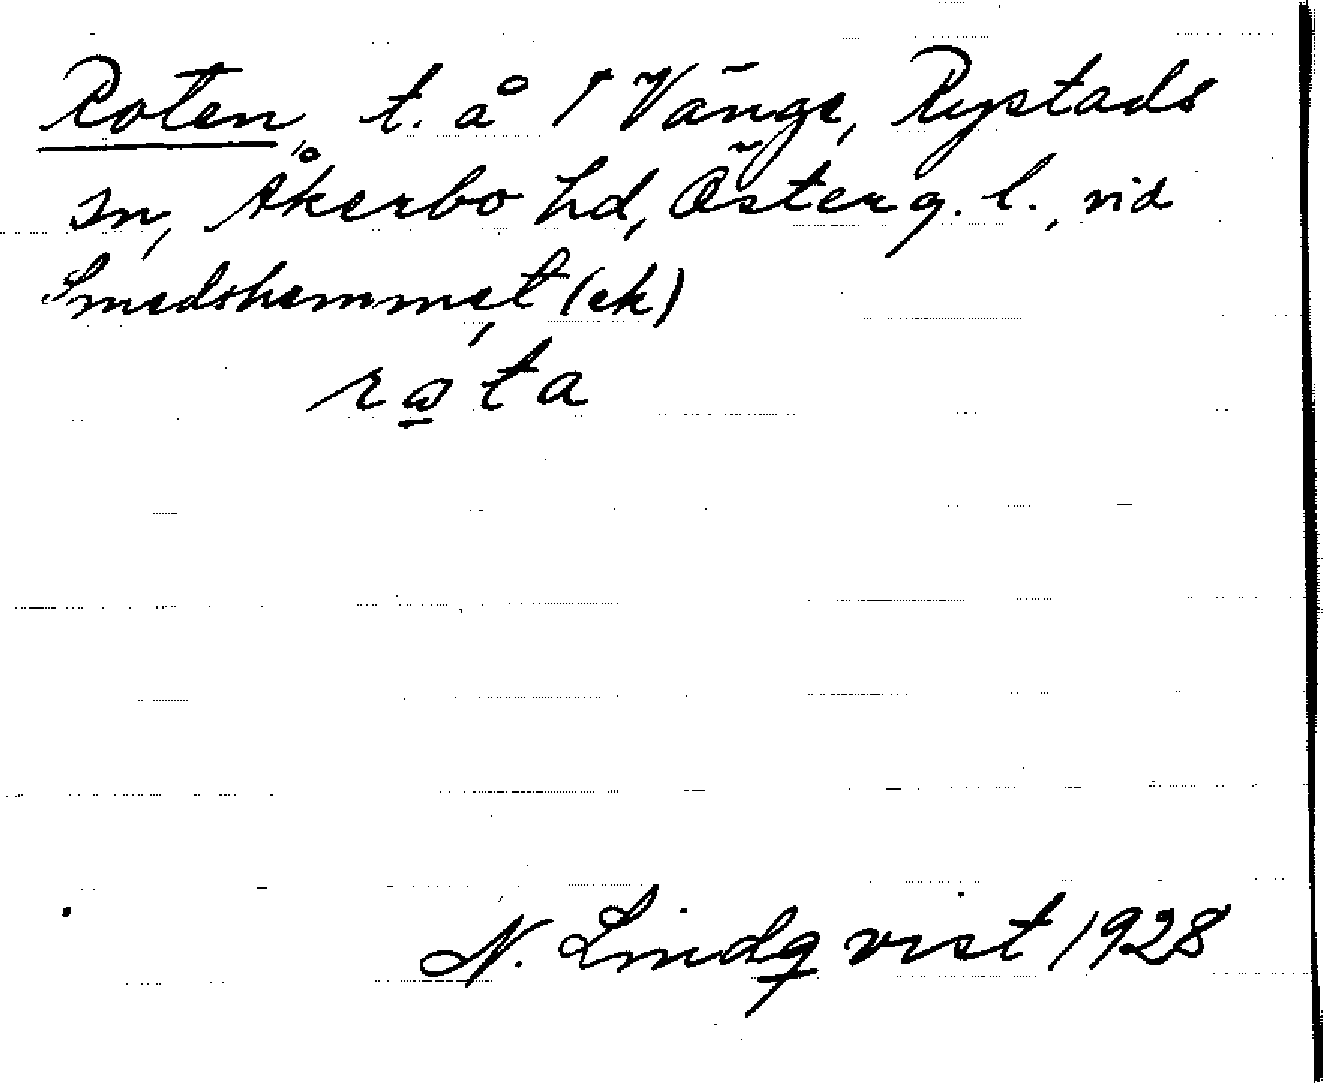 Roten, t. å / Vänge, Rystads
sn, Åkerbo hd, Österg. l., vid
Smedshemmet (ek)
rata
N. Lindqvist 1928